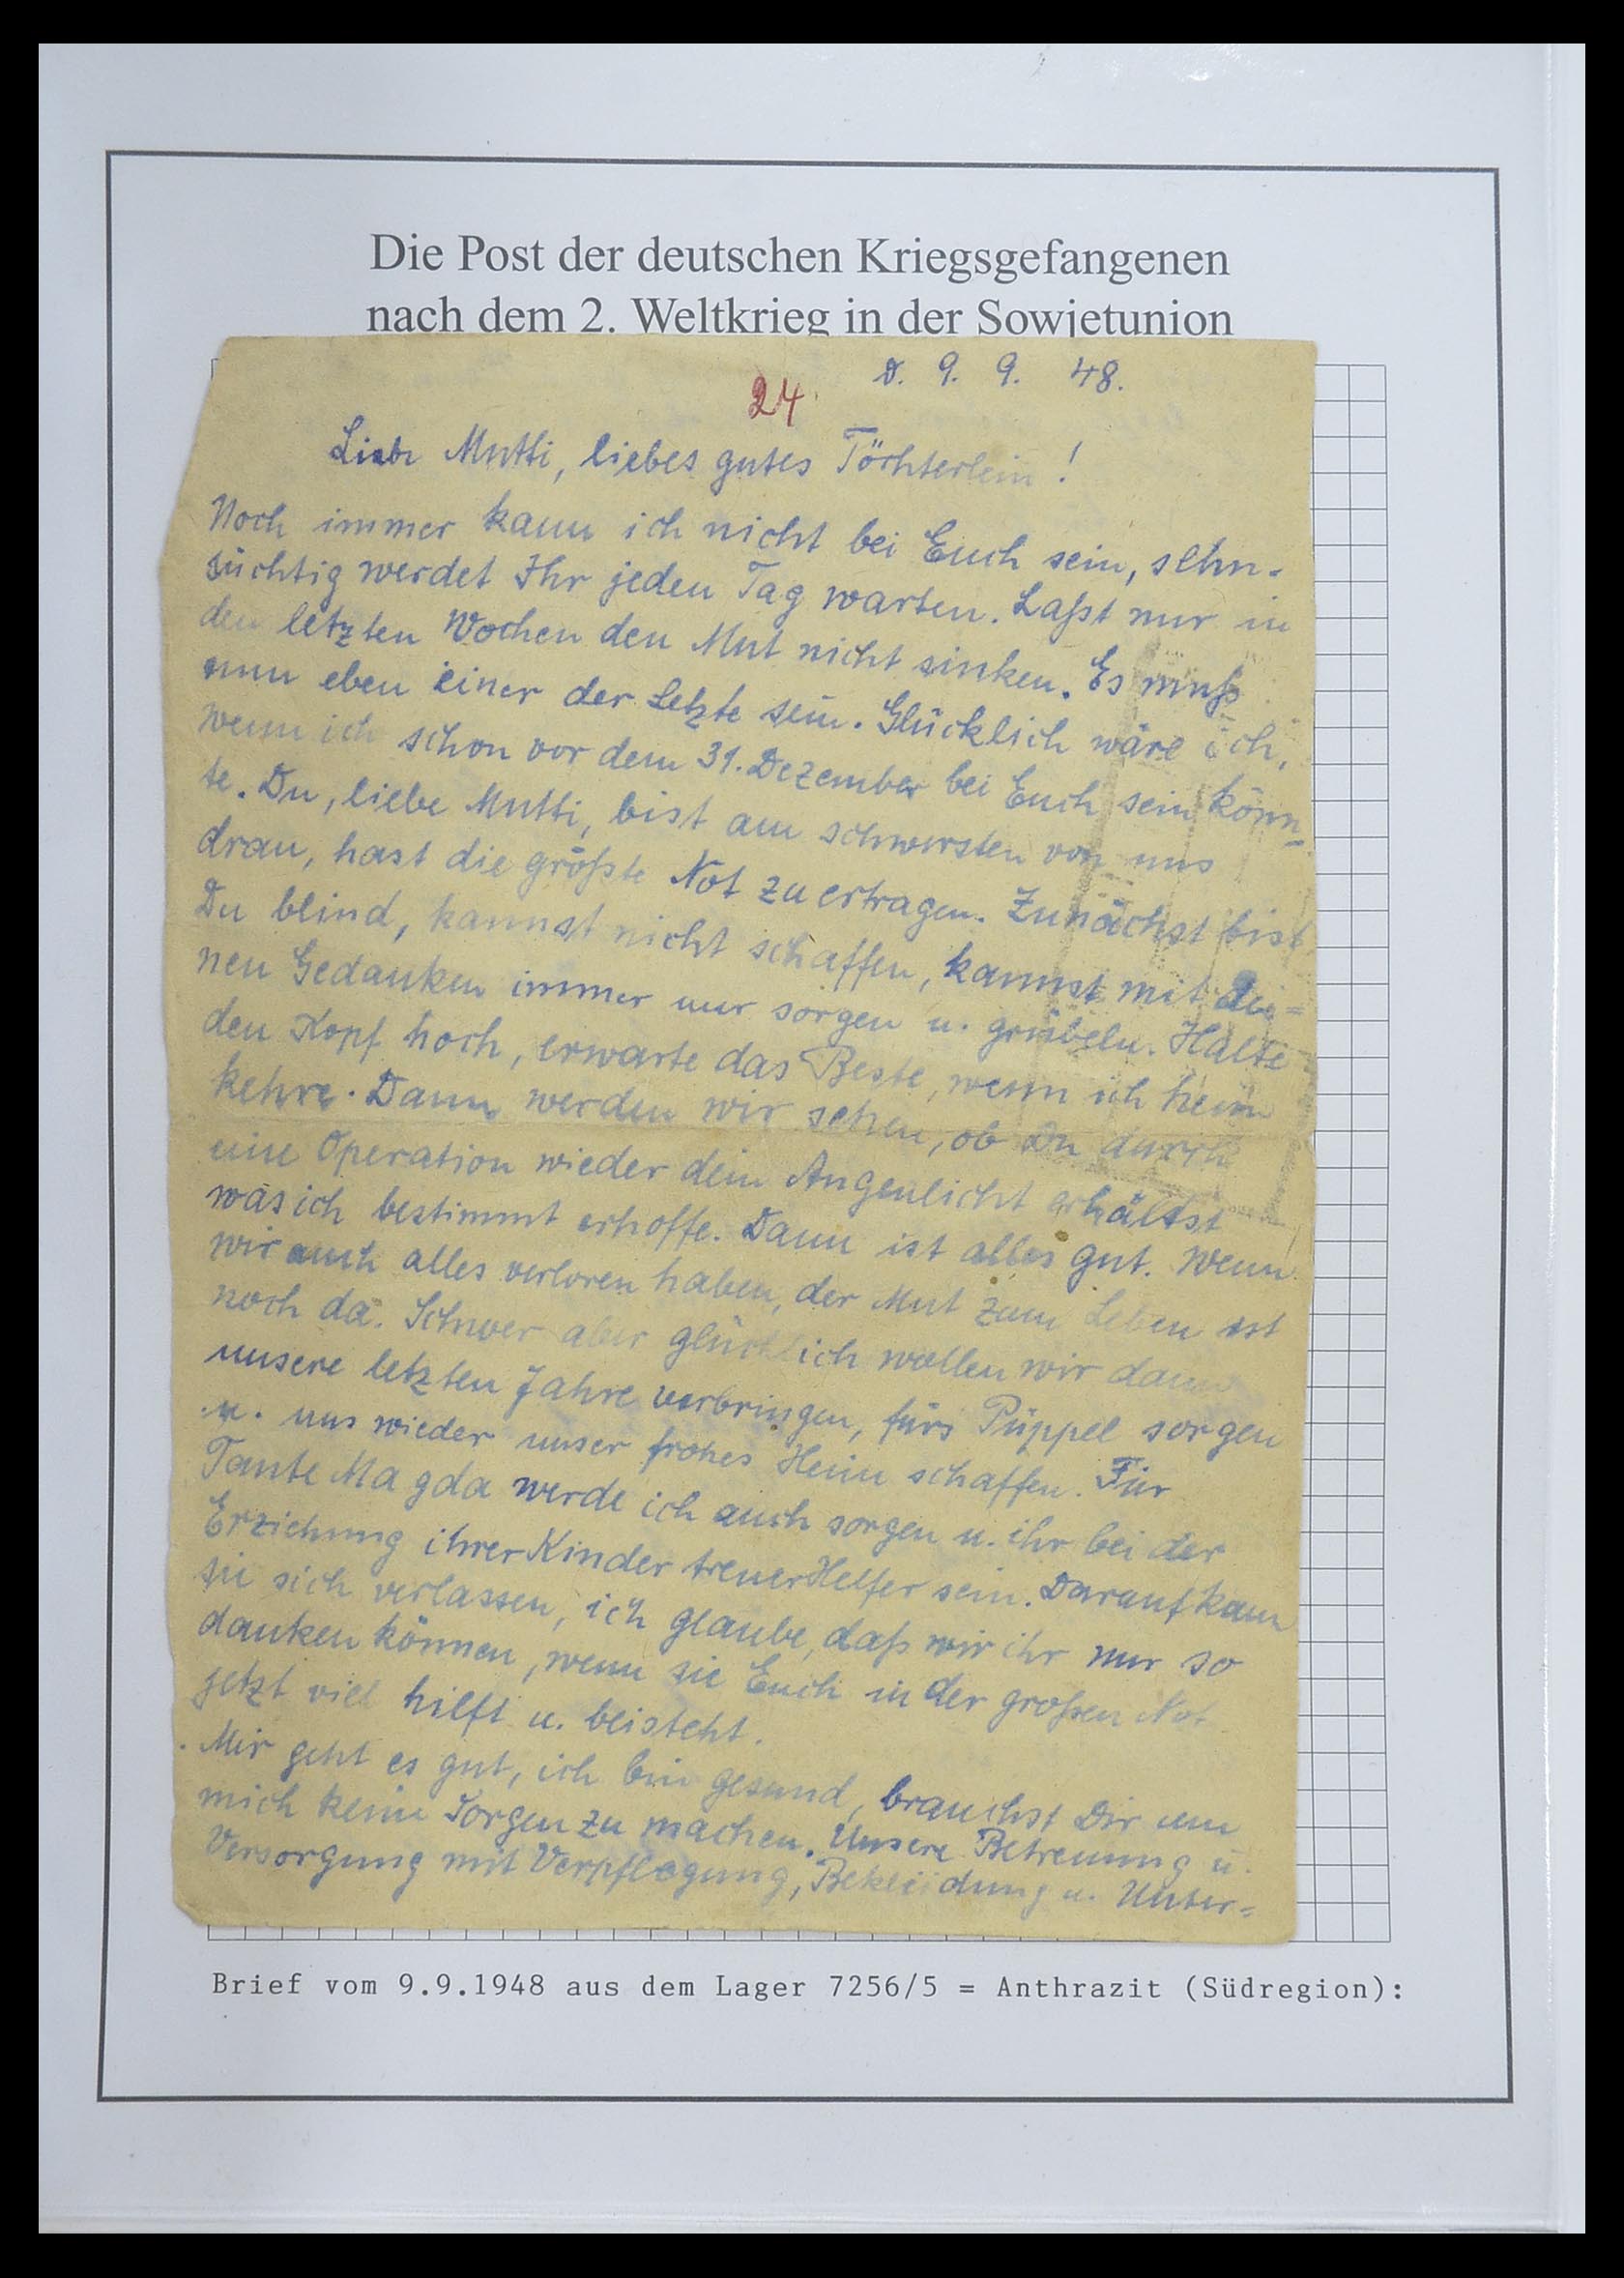 Die Post der deutschen Kriegsgefangenen
nach dem 2. Weltkrieg in der Sowjetunion
24.
d. 9. 9. 48.
Liebe Mutti, liebes gutes Töchterlein!
Noch immer kann ich nicht bei Euch sein, sehn-
süchtig werdet Ihr jeden Tag warten. Laßt nur in
den letzten Wochen den Mut nicht sinken. Es muß
nun eben einer der Letzte sein. Glücklich wäre ich,
wenn ich schon vor dem 31. Dezember bei Euch sein könn-
te. Du, liebe Mutti, bist am schwersten von uns
dran, hast die größte Not zu ertragen. Zunächst bist
Du blind, kannst nicht schaffen, kannst mit dei=
nen Gedanken immer nur sorgen u. grübeln. Halte
den Kopf hoch, erwarte das Beste, wenn ich heim
kehre. Dann werden wir sehen, ob Du durch
eine Operation wieder dein Augenlicht erhältst
was ich bestimmt erhoffe. Dann ist alles gut. Wenn
wir auch alles verloren haben, der Mut zum Leben ist
noch da. Schwer aber glücklich wollen wir dann
unsere letzten Jahre verbringen, fürs Püppel sorgen
u. uns wieder unser frohes Heim schaffen. Für
Tante Magda werde ich auch sorgen u. ihr bei der
Erziehung ihrer Kinder treuer Helfer sein. Darauf kann
sie sich verlassen, ich glaube, daß wir ihr nur so
danken können, wenn sie Euch in der großen Not
jetzt viel hilft u. beisteht.
Mir geht es gut, ich bin gesund, brauchst Dir um
mich keine Sorgen zu machen. Unsere Betreuung u.
Versorgung mit Verpflegung, Bekleidung u. Unter=
Brief vom 9.9.1948 aus dem Lager 7256/5 = Anthrazit (Südregion):